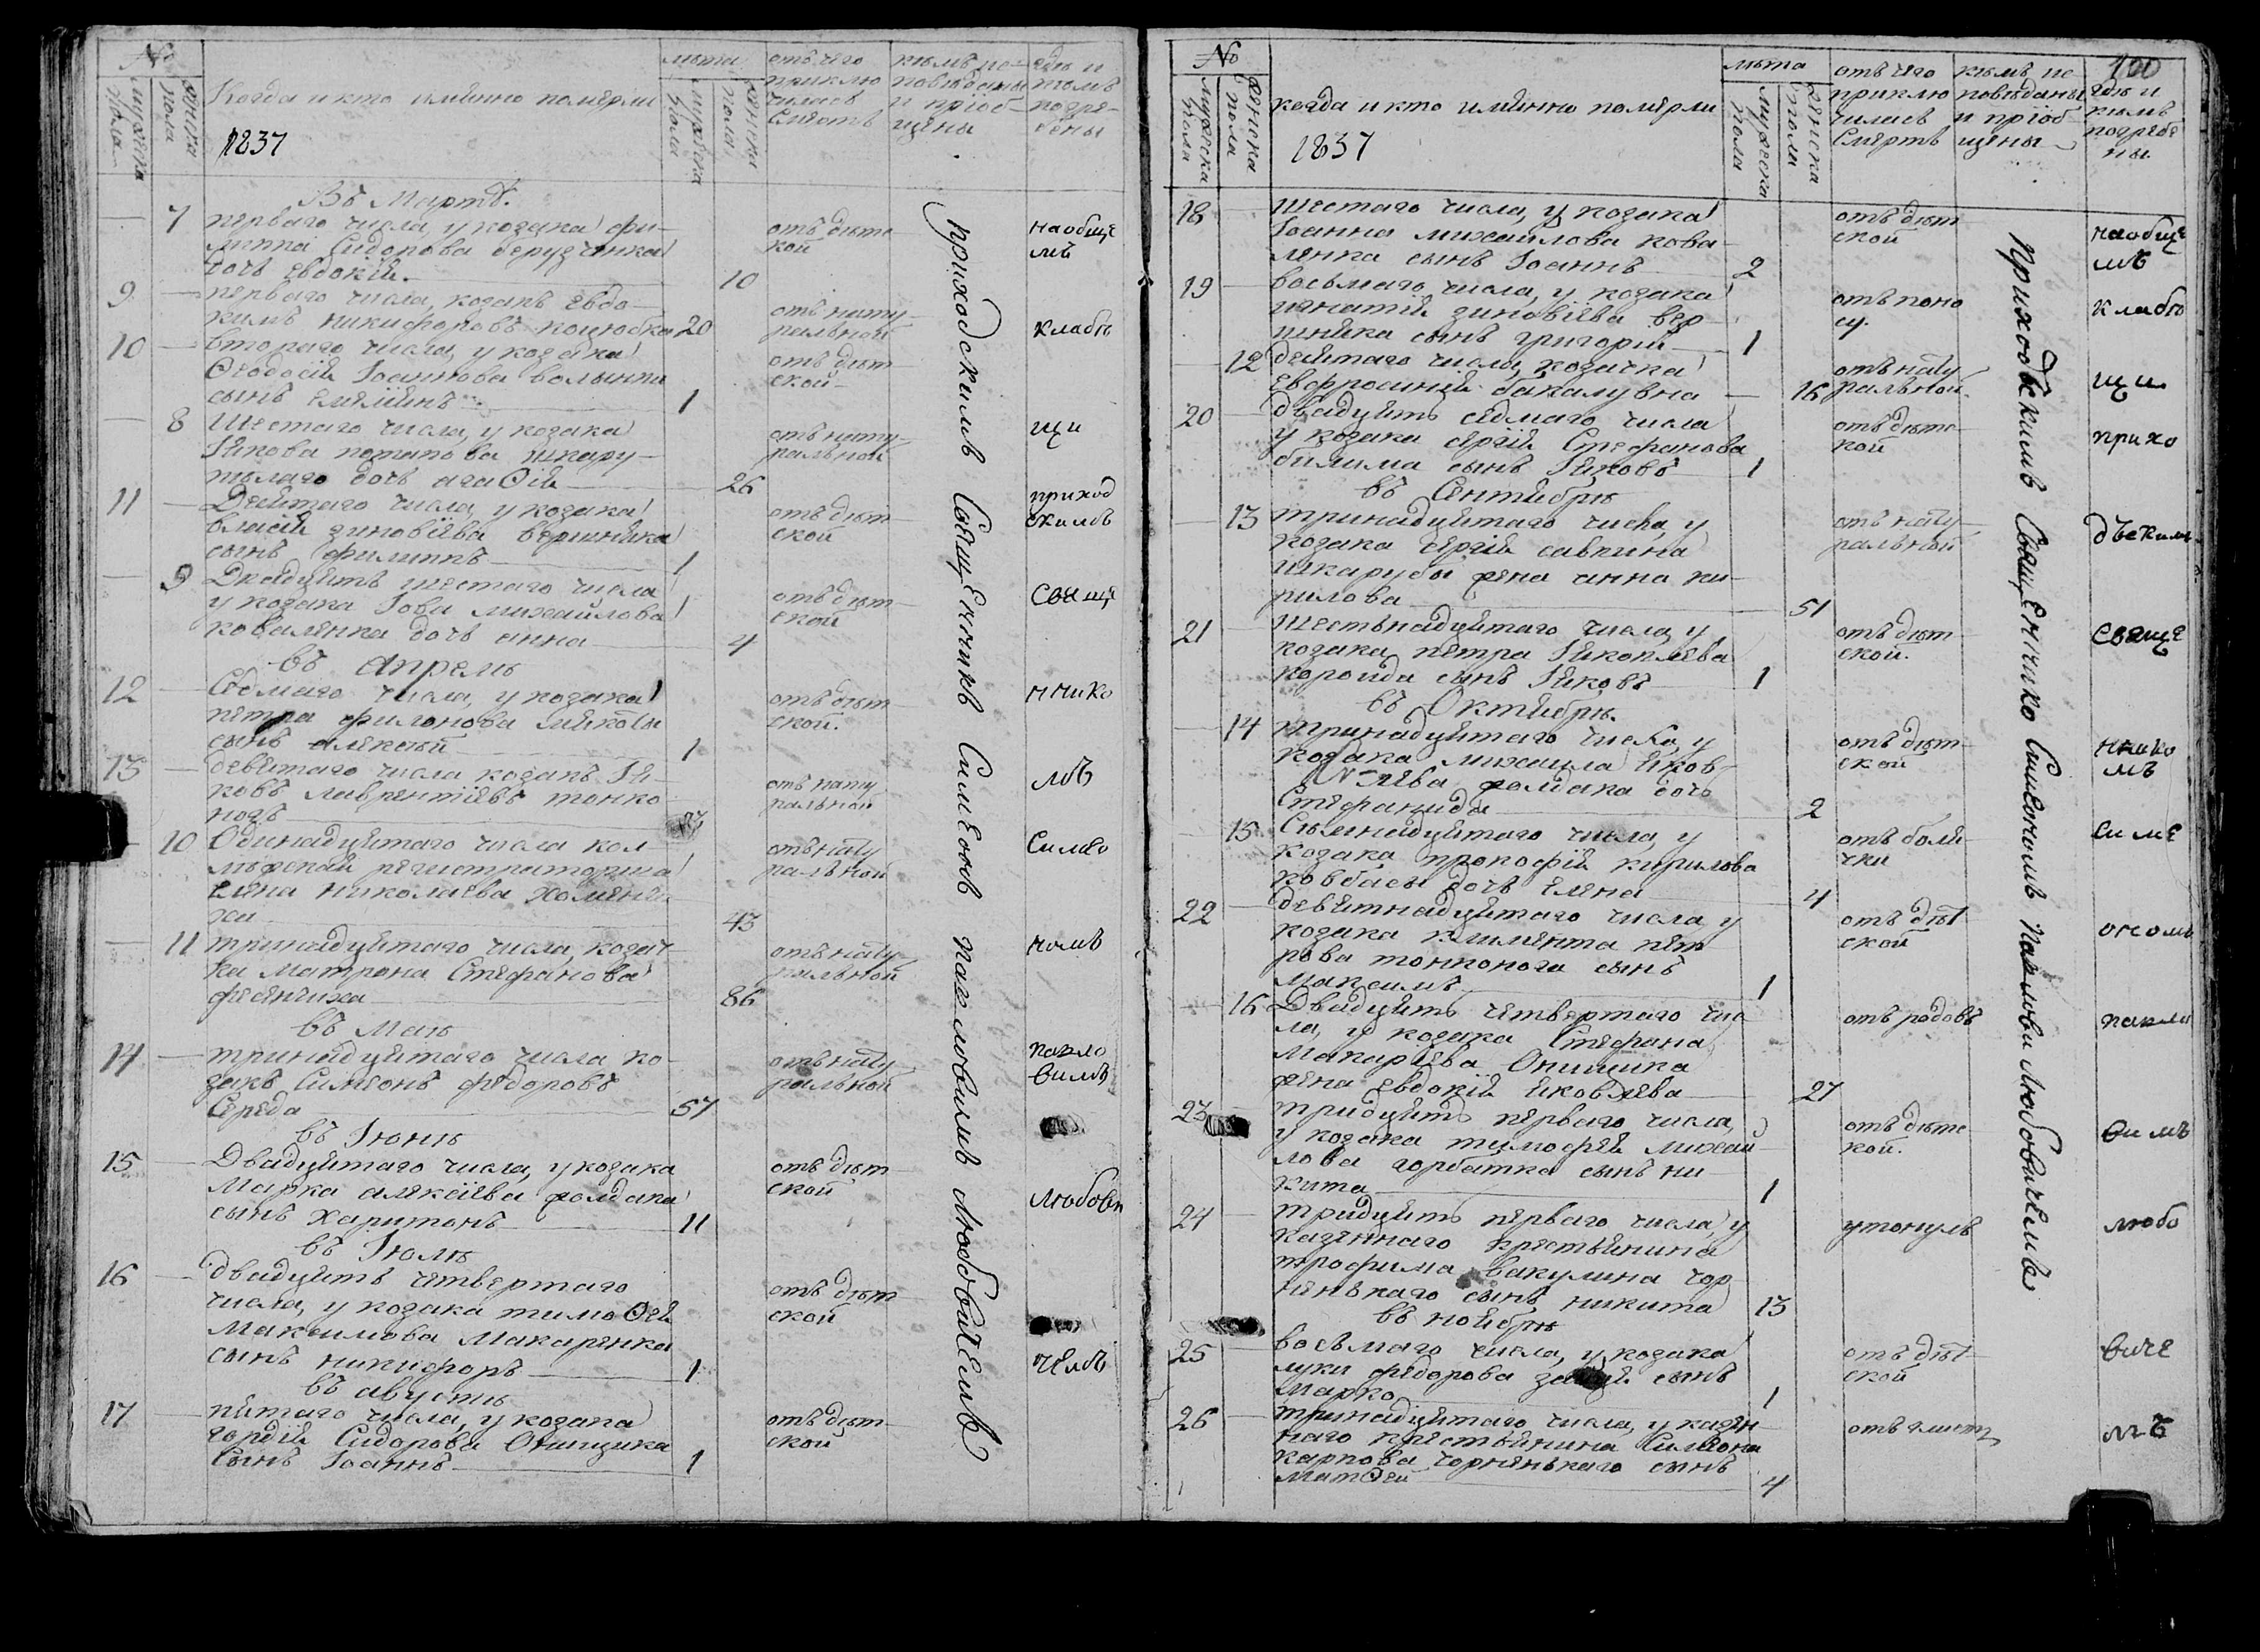 №
мужеска пола
женска пола
Когда и кто именно померли
1837
лета
мужеска пола
женска пола
отъ чего приклю
чилась
смерть
кемъ ис
поведаны
и приоб
щены
где и
кемъ
погре
бены
Въ Марте.
7 перваго числа, у козака фи-
липпа Сидорова
дочь евдокия. 10
отъ детс
кой
на обще
мъ
9 перваго числа, козакъ евдо-
кимъ никифоровъ коцюбка 20
отъ нату-
ральной
кладби
10 втораго числа, у козака
Феодосия Иоаннова волынки
сынъ 1
отъ дет
ской
8 Шестаго числа, у козака
Якова потапова шкару-
пелаго дочь агафия 26
отъ нату-
ральной
щи
11 Девятаго числа, у козака
власия зиновиева вершника
сынъ филиппъ 1
отъ дет
ской
приход
скимъ
9 Двадцять шестаго числа
у козака Иова михайлова
коваленка дочь анна 4
отъ дет
ской
Свяще
въ апреле
12 Седмаго числа, у козака
петра филонова
сынъ алексий 1
отъ дет
ской.
ннико
13 девятаго числа козакъ Я-
ковъ лаврентиевъ тонко
ногъ
отъ нату
ральной
мъ
10 Одинадцятаго числа кол
лежская регистраторша
елена николаева хомени-
ха 43
отъ нату
ральной
Симео
11 тринадцятаго числа, козач
ка матрона Стефанова
федениха 86
отъ нату
ральной
номъ
въ Маю
14 тринадцятаго числа ко
закъ Симеонъ федоровъ
Середа 57
отъ нату
ральной
павло
вимъ
въ Июню
15 Двадцятаго числа, у козака
марка алексиева желдака
сынъ харитонъ 11
отъ дет
ской
любови
въ Июлю
16 двадцять четвертаго
числа, у козака тимофея
максимова макаренка
сынъ никифоръ 1
отъ дет
ской
чемъ
въ августе
17 пятаго числа, у козака
гордия Сидорова Онищика
сынъ Иоаннъ 1
отъ дет
ской
приходскимъ Священникъ Симеонъ павловимъ любовичемъ
100
№
мужеска пола
женска пола
когда и кто именно померли
1837
лета
мужеска пола
женска пола
отъ чего
приклю
чилась
смерть
кемъ ис
поведаны
и приоб
щены
где и
кемъ
погребе
ны.
18 шестаго числа, у козака
Иоанна михайлова кова
ленка сынъ Иоаннъ 2
отъ дет
ской
на обще
мъ
19 восьмаго числа, у козака
игнатия зиновиева вер
шника сынъ григорий 1
отъ поно
су.
кладби
12 девятаго числа, козачка
евфросиния бакалувна 16
отъ нату
ральной.
щи
20 двадцять седмаго числа
у козака сергия Стефанова
билима сынъ Яковъ 1
отъ детс
кой
прихо
въ Сентябре
13 тринадцятаго числа, у
козака сергия савкина
шкарубы жена анна ки-
рилова 51
отъ нату
ральной
дъскимъ
21 шестьнадцятаго числа, у
козака петра Яковлева
короида сынъ Яковъ 1
отъ дет
ской.
Свяще
въ Октябре.
14 тринадцятаго числа, у
козака михаила яков-
лева желдака дочь
Стефанида 2
отъ дет
ской
ннико
мъ
15 Семнадцятаго числа, у
козака прокофия кирилова
ковбасы дочь елена 4
отъ боля
чки
симе
22 девятнадцятаго числа, у
козака климента пет
рова тонконога сынъ
максимъ 1
отъ дет
ской
ономъ
16 Двадцять четвертаго чис
ла, у козака Стефана
макариева Онищика
жена евдокия яковлева 27
отъ родовъ
павло
23 тридцять перваго числа,
у козака тимофея михай
лова горбатка сынъ ни
кита 1
отъ детс
кой.
вимъ
24 тридцять перваго числа, у
казеннаго крестьянина
трофима вакулина чор
ненькаго сынъ никита 13
утонулъ
любо
въ ноябре
25 восьмаго числа, у козака
луки федорова сынъ
марко 1
отъ дет
ской
виче
26 тринадцятаго числа, у казен
наго крестьянина Симеона
карпова чорненькаго сынъ
матфей 4
отъ глист
мъ
приходскимъ Священнико Симеономъ павловимъ любовичемъ